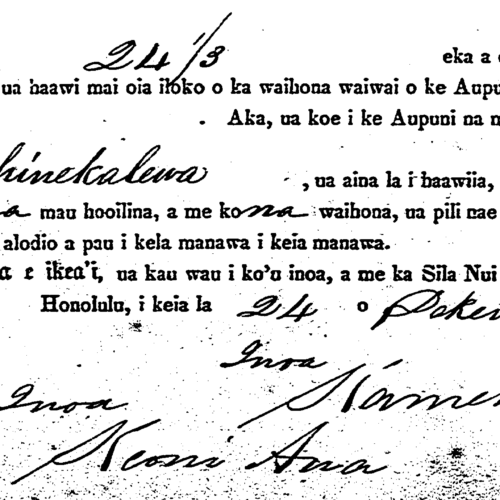 24 1/3 eka a o
ua haawi mai oia iloko o ka waihona waiwai o ke Aupu
. Aka, ua koe i ke Aupuni na m
hinekalewa , ua aina la i haawiia,
a mau hooilina, a me kona waihona, ua pili nae
alodio a pau i kela manawa i keia manawa.
a e ikea'i, ua kau wau i ko'u inoa, a me ka Sila Nui
Honolulu, i keia la 24 o Dekem
Inoa Kameh
Inoa
Keoni Ana